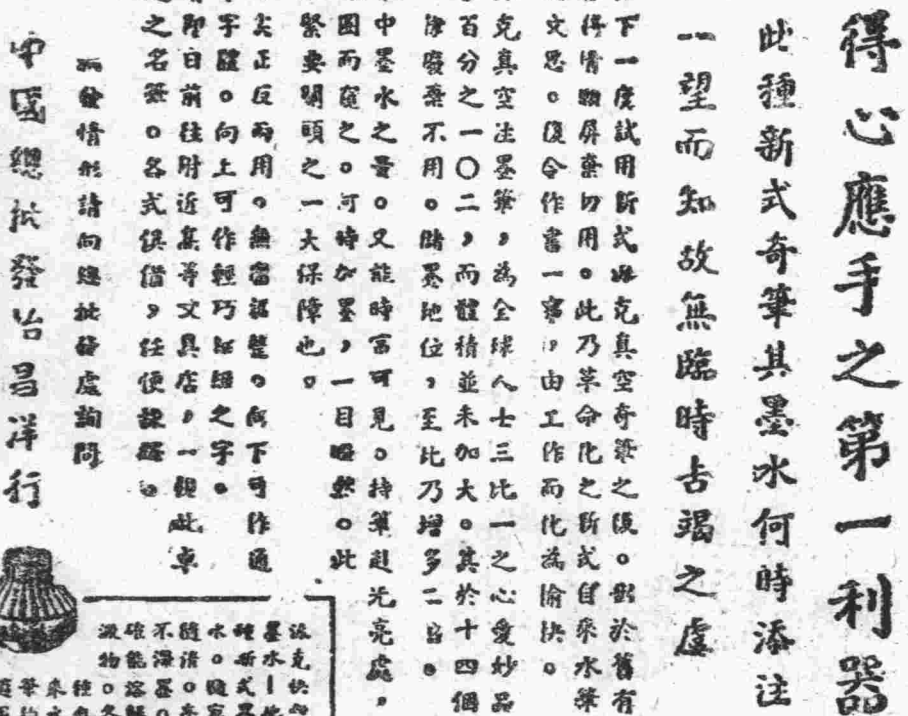 得心應手之第一利器
此種新式奇筆其墨水何時添注
一望而知故無臨時占竭之虞
下一度試用新式派克真空奇筆之後。對於舊有
得情願屏棄切用。此乃革命化之新式自來水筆
文思。復令作書一事,由工作而化為愉快。
克真空注墨筆,為全球人士三比一之心愛妙品
百分之一〇二,而體積並未加大。其於十四個
廢棄不用。儲墨地位,至比乃增多二倍。
中墨水之量。又能時常可見。持筆起光亮處,
圈而窺之。何時加墨,一目瞭然。此
緊要關頭之一大保障也。
尖正反兩用。無需調整。向下可作通
字體。向上可作輕巧細之字。
即日前往附近某等文具店,一觀此卓
之名筆。各式俱備,任便採擇。
發情形請向總批發處詢問
中國總批發怡昌洋行
派克快
墨水
種新式墨
水。
隨清。
不滯墨
確能溶解
澱物。